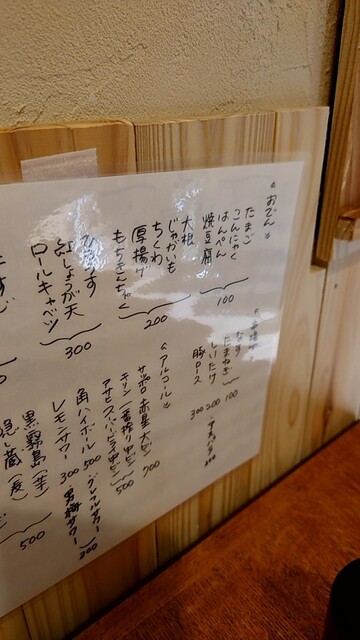 《おでん》
たまご
こんにゃく
はんぺん
焼豆腐
100
大根
じゃがいも
ちくわ
厚揚げ
もちきんちゃく
200
紅しょうが天
ロールキャベツ
300
なす
たまねぎ 100
しいたけ 200
豚ロース 300
《アルコール》
サッポロ赤星大ビン 700
キリン一番搾り中ビン
アサヒスーパードライ中ビン
500
角ハイボール 500
レモンサワー 300
黒霧島(芋)
隠し蔵(麦)
500